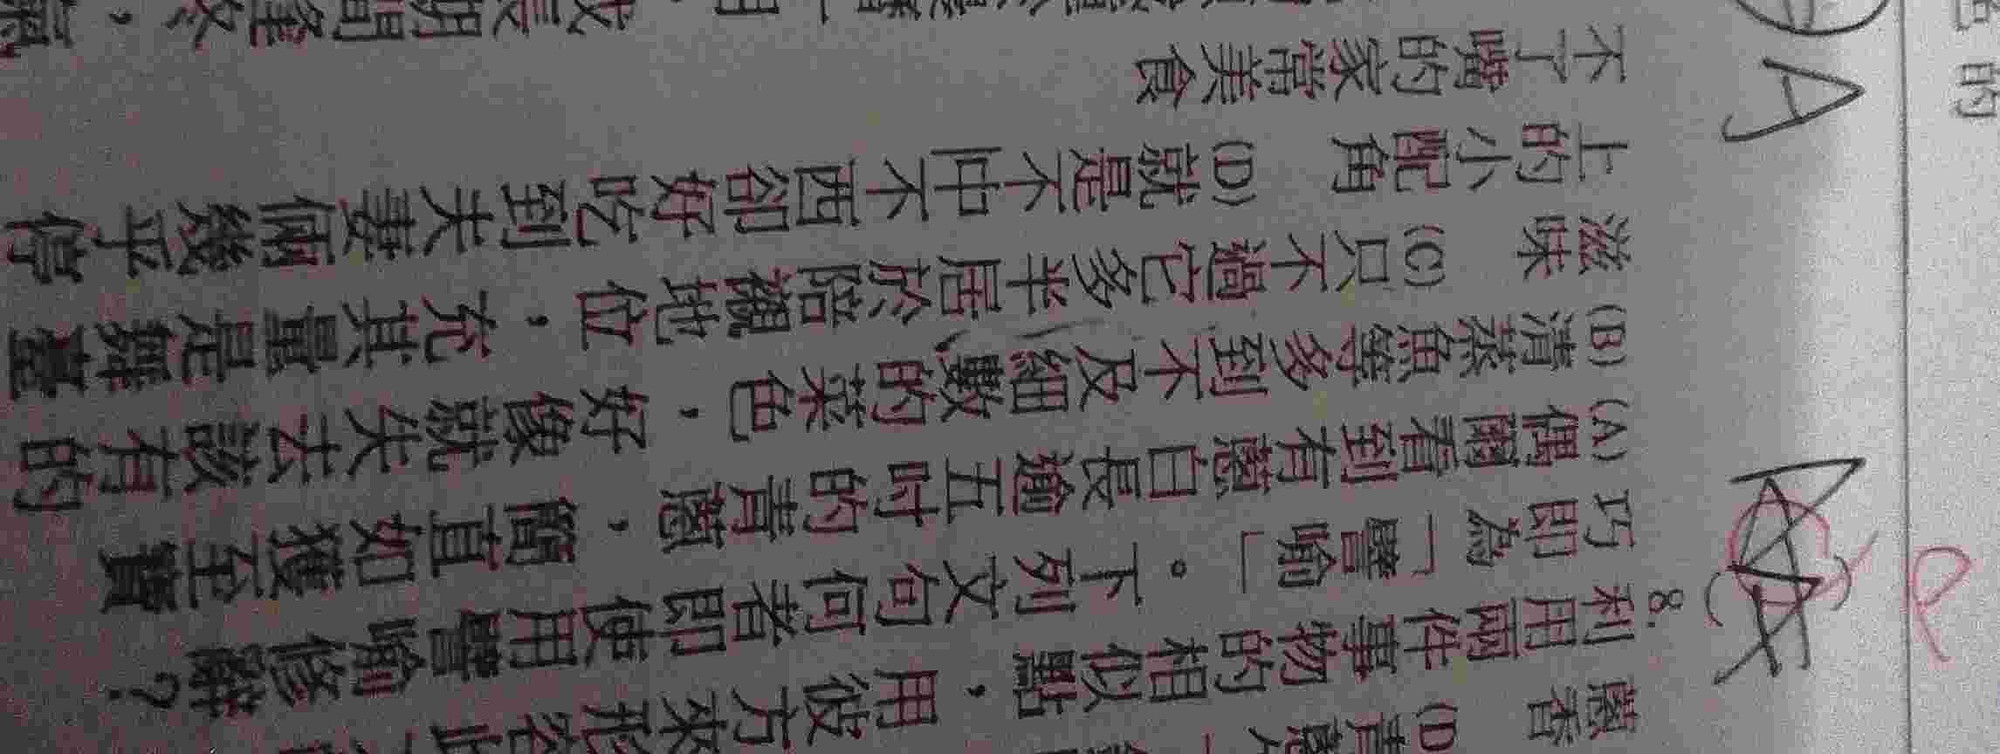 蔥香 (D) 青蔥
8. 利用兩件事物的相似點，用彼方來形容此
巧即為「譬喻」。下列文句何者即使用譬喻修辭？
(A) 偶爾看到有蔥白長逾五吋的青蔥，簡直如獲至寶
(B) 清蒸魚等多到不及細數的菜色，好像就失去該有的
滋味 (C) 只不過它多半居於陪襯地位，充其量是舞臺
上的小配角 (D) 就是不中不西卻好吃到夫妻倆幾乎停
不了嘴的家常美食
A
的